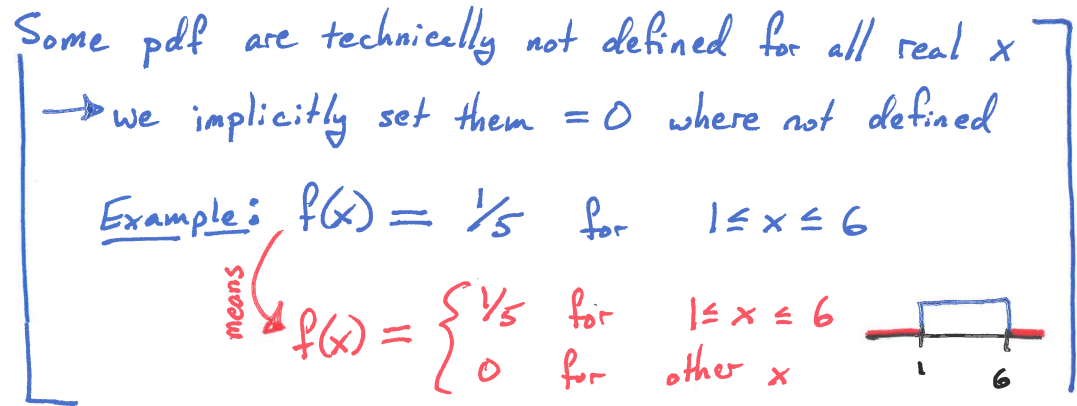 Some pdf are technically not defined for all real x
→ we implicitly set them = 0 where not defined
Example: f(x) = 1/5 for 1 ≤ x ≤ 6
means
f(x) = { 1/5 for 1 ≤ x ≤ 6
0 for other x
1 6